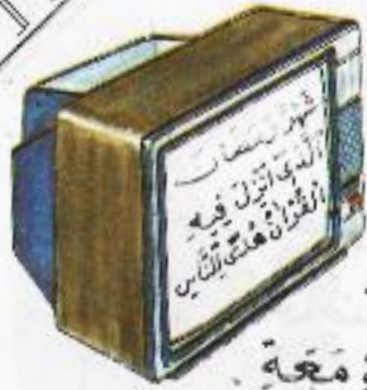 شَهْرُ رَمَضَانَ
الَّذِي أُنْزِلَ فِيهِ
الْقُرْآنُ هُدًى لِلنَّاسِ